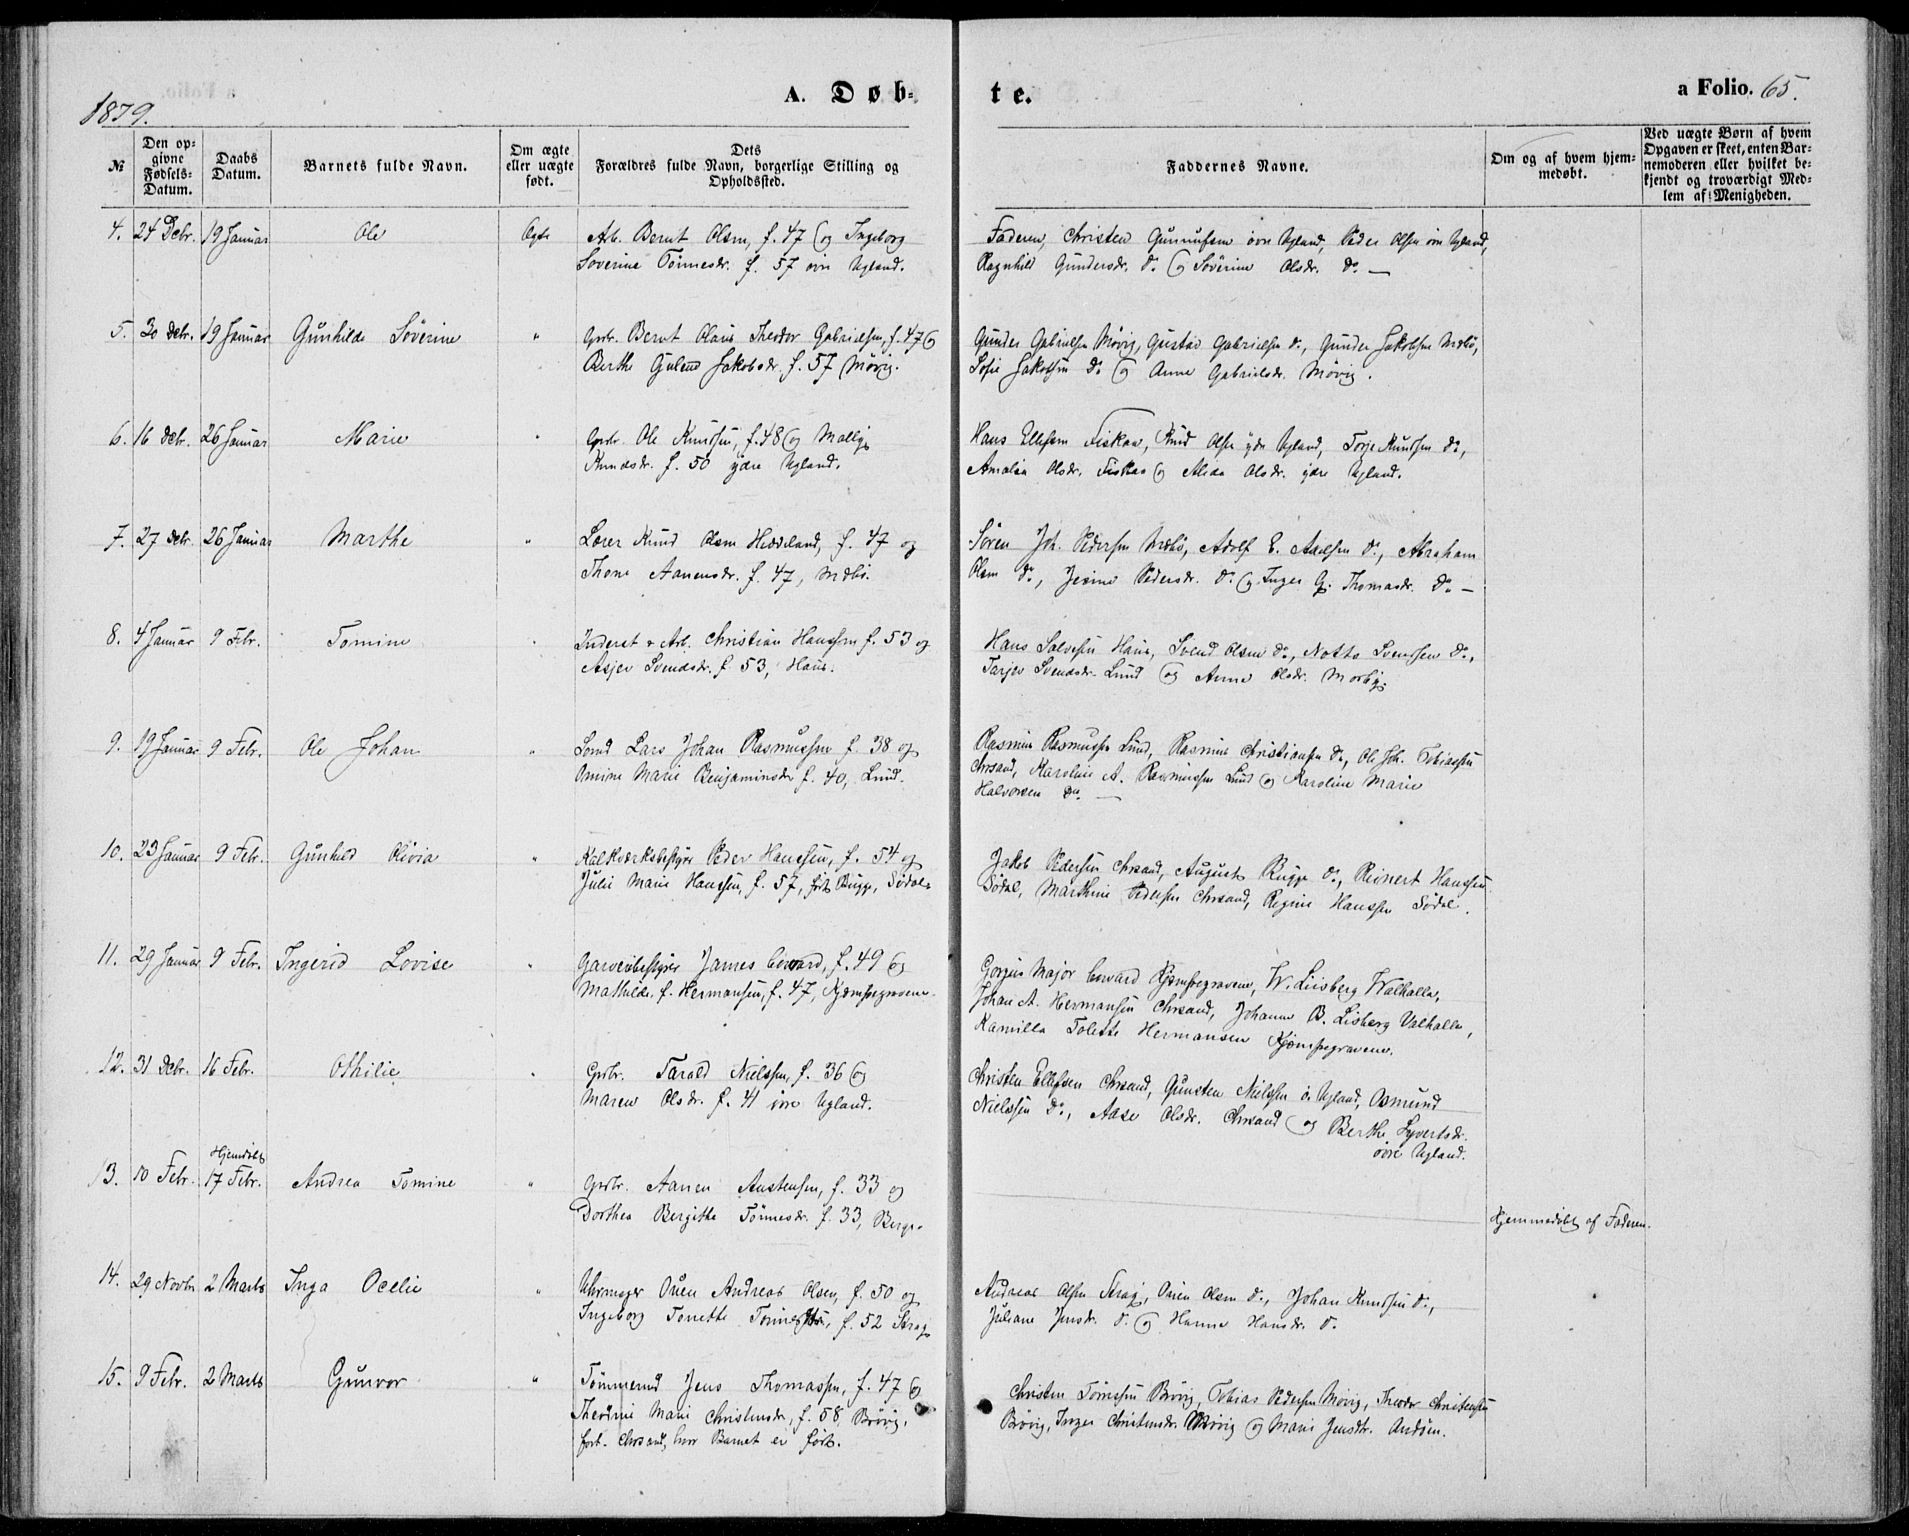 1879.
A. Døb-
te.
a Folio. 65.
№
Den op-
givne
Fødsels-
Datum.
Daabs
Datum.
Barnets fulde Navn.
Om ægte
eller uægte
født.
Dets
Forældres fulde Navn, borgerlige Stilling og
Opholdssted.
Faddernes Navne.
Om og af hvem hjem-
medøbt.
Ved uægte Børn af hvem
Opgaven er skeet, enten Bar-
nemoderen eller hvilket be-
kjendt og troværdigt Med-
lem af Menigheden.
4. 24 Debr. 19 Januar Ole Ægte Arb. Bernt Olsen, f. 47 og Ingeborg
Severine Tønnesdr. f. 57 øvre Ugland.
Faderen, Christen Gunnufsen øvre Ugland, Peder Olsen øvre Ugland,
Ragnhild Gundersdr. do. og Sörine Olsdr. do. —
5. 30 Debr. 19 Januar Gunhilde Söverine " Grbr. Bernt Olaus Theodor Gabrielsen, f. 47 og
Berthe Gulend Jakobsdr. f. 57 Møvig.
Gunder Gabrielsen Møvig, Gustav Gabrielsen do., Gunder Jakobsen Mæbø,
Sofie Jakobsen do. og Anne Gabrielsdr. Møvig.
6. 16 Debr. 26 Januar Marie " Grbr. Ole Knudsen, f. 48 og Mally
Knudsdr. f. 50 ydre Ugland.
Hans Ellefsen Fiskaa, Knud Olsen ydre Ugland, Torje Knudsen do.,
Amalia Olsdr. Fiskaa og Alida Olsdr. ydre Ugland.
7. 27 Debr. 26 Januar Marthe " Lærer Knud Olsen Heddeland, f. 47 og
Thone Aanensdr. f. 47, Mæbø.
Sören Joh. Pedersen Mæbø, Adolf E. Axelsen do., Abraham
Olsen do., Jesine Pedersdr. do. og Inger G. Thomasdr. do. —
8. 4 Januar 9 Febr. Tomine " Inderst & Arb. Christian Hanssen f. 53 og
Asjer Svendsdr. f. 53, Haus.
Hans Salvesen Haus, Svend Olsen do., Notto Svendsen do.,
Tarjer Svendsdr. Lund og Anne Olsdr. Mosby
9. 19 Januar 9 Febr. Ole Johan " Lars Johan Rasmussen f. 38 og
Omine Marie Benjaminsdr. f. 40, Lund.
Rasmus Rasmussen Lund, Rasmus Christiansen do., Ole Joh. Tobiassen
Chrsand, Karoline A. Rasmussen Lund og Karoline Marie
Halvorsen do. —
10. 23 Januar 9 Febr. Gunhild Olivia " Kalkværksbestyrer Peder Hanssen, f. 54 og
Julie Marie Hanssen, f. 57, født Bugge, Sødal.
Jakob Pedersen Chrsand, August Bugge do., Reinert Hanssen
Sødal, Marthine Pedersen Chrsand, Regine Hanssen Sødal.
11. 29 Januar 9 Febr. Ingerid Lovise " Garveribestyrer James Coward, f. 49 og
Mathilde f. Hermansen, f. 47, Kjæmpegravene.
Major Coward Kjæmpegravene, W. Liisberg Walhalla,
Johan A. Hermansen Chrsand, Johanne B. Lisberg Valhalla,
Kamilla Tolette Hermansen Kjæmpegravene.
12. 31 Debr. 16 Febr. Othilie " Grbr. Tarald Nielssen, f. 36 og
Maren Olsdr. f. 41 øvre Ugland.
Christen Ellefsen Chrsand, Gunsten Nielssen ø. Ugland, Osmund
Nielssen do., Aase Olsdr. Chrsand og Berthe Syvertsdr.
øvre Ugland.
13. 10 Febr. Hjemdøbt
17 Febr. Andrea Tomine " Grbr. Aanen Austensen, f. 33 og
Dorthea Bergithe Tönnesdr. f. 33, Berge.
Hjemmedøbt af Faderen.
14. 29 Novbr. 2 Marts Inga Ocelie " Uhrmager Ouen Andreas Olsen, f. 50 og
Ingeborg Tonette f. 52 Strag
Andreas Olsen Strag, Ouen Olsen do., Johan Knudsen do.,
Juliane Jensdr. do. og Hanne Hansdr. do.
15. 9 Febr. 2 Marts Gunvor " Tømmermd Jens Thomassen, f. 47 og
Theodine Marie Christensdr., f. 58, Brøvig,
Chrsand, hvor Barnet er født.
Christen Tønnesen Brøvig, Tobias Pedersen Møvig, Theodor Christensen
Brøvig, Inger Christensdr. Møvig og Marie Jensdtr. Andøen.